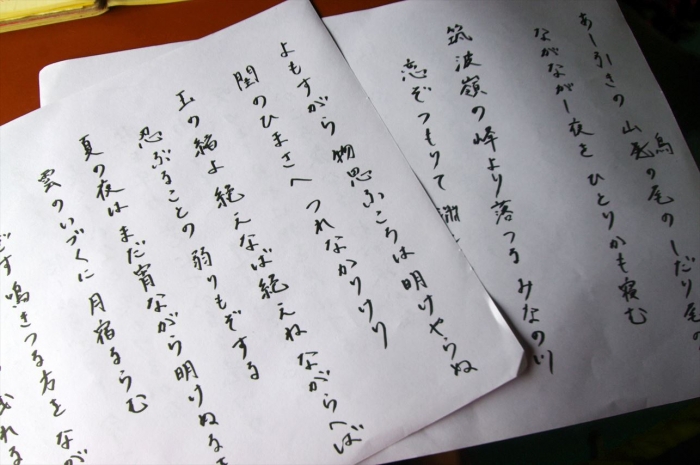 あし引きの 山鳥の尾の しだり尾の
ながながし夜を ひとりかも寝む
筑波嶺の峰より落つる みなの川
恋ぞつもりて 淵
よもすがら 物思ふころは 明けやらぬ
閨のひまさへ つれなかりけり
玉の緒よ 絶えなば絶えね ながらへば
忍ぶることの 弱りもぞする
夏の夜は まだ宵ながら 明けぬるを
雲のいづくに 月宿るらむ
ぎす鳴きつる方を なが
れる